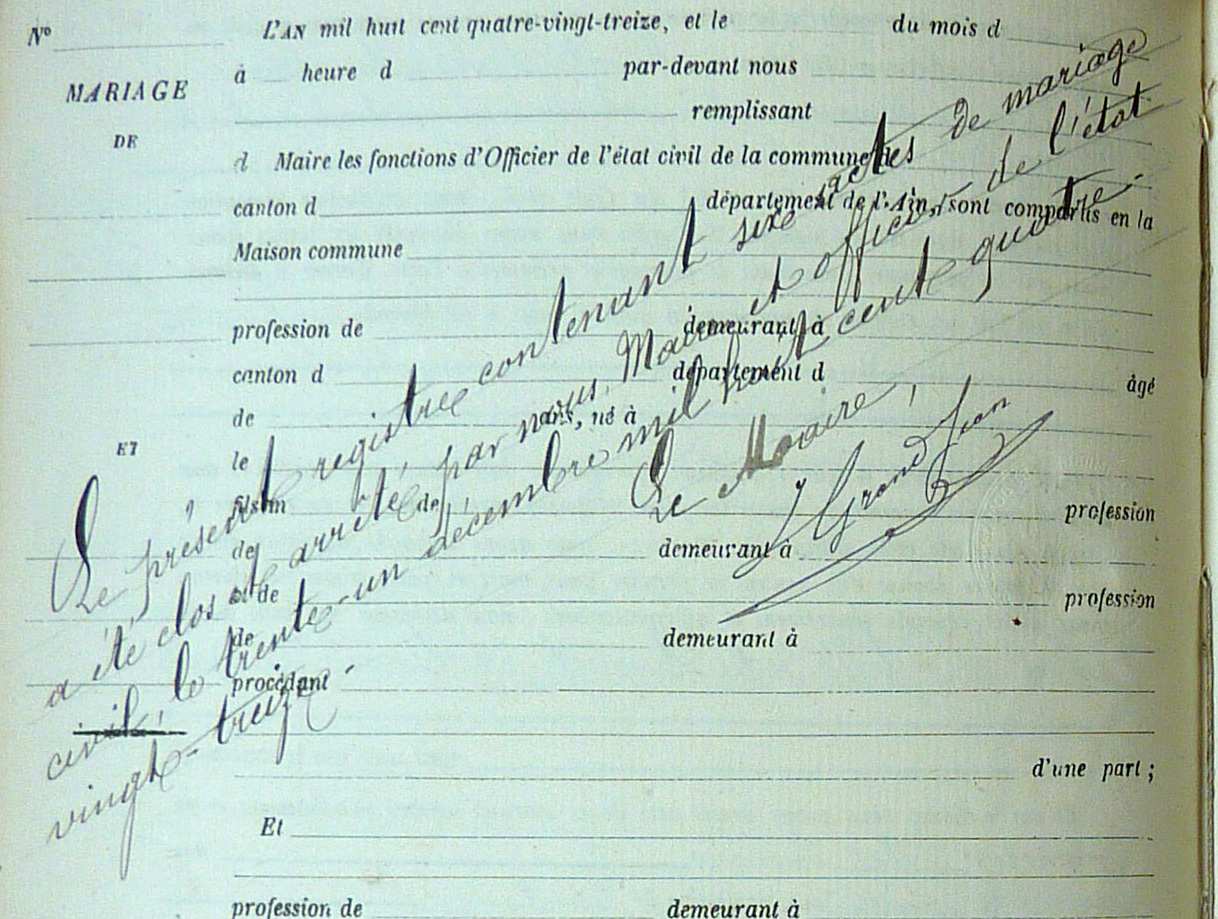 Nº L'AN mil huit cent quatre-vingt-treize, et le du mois d
MARIAGE
à heure d par-devant nous
remplissant
DE
d Maire les fonctions d'Officier de l'état civil de la commune de
canton d département de l'Ain, sont comparus en la
Maison commune
profession de demeurant à
canton d département d âgé
de ans, né à
ET
le
fils m de profession
de demeurant à
et de profession
de demeurant à
procédant
d'une part ;
Et
profession de demeurant à
Le présent registre contenant seize actes de mariage
a été clos et arrêté, par nous, Maire et officier de l'état
civil, le trente-un décembre mil huit cent quatre-
vingt-treize.
Le Maire,
GrandJean